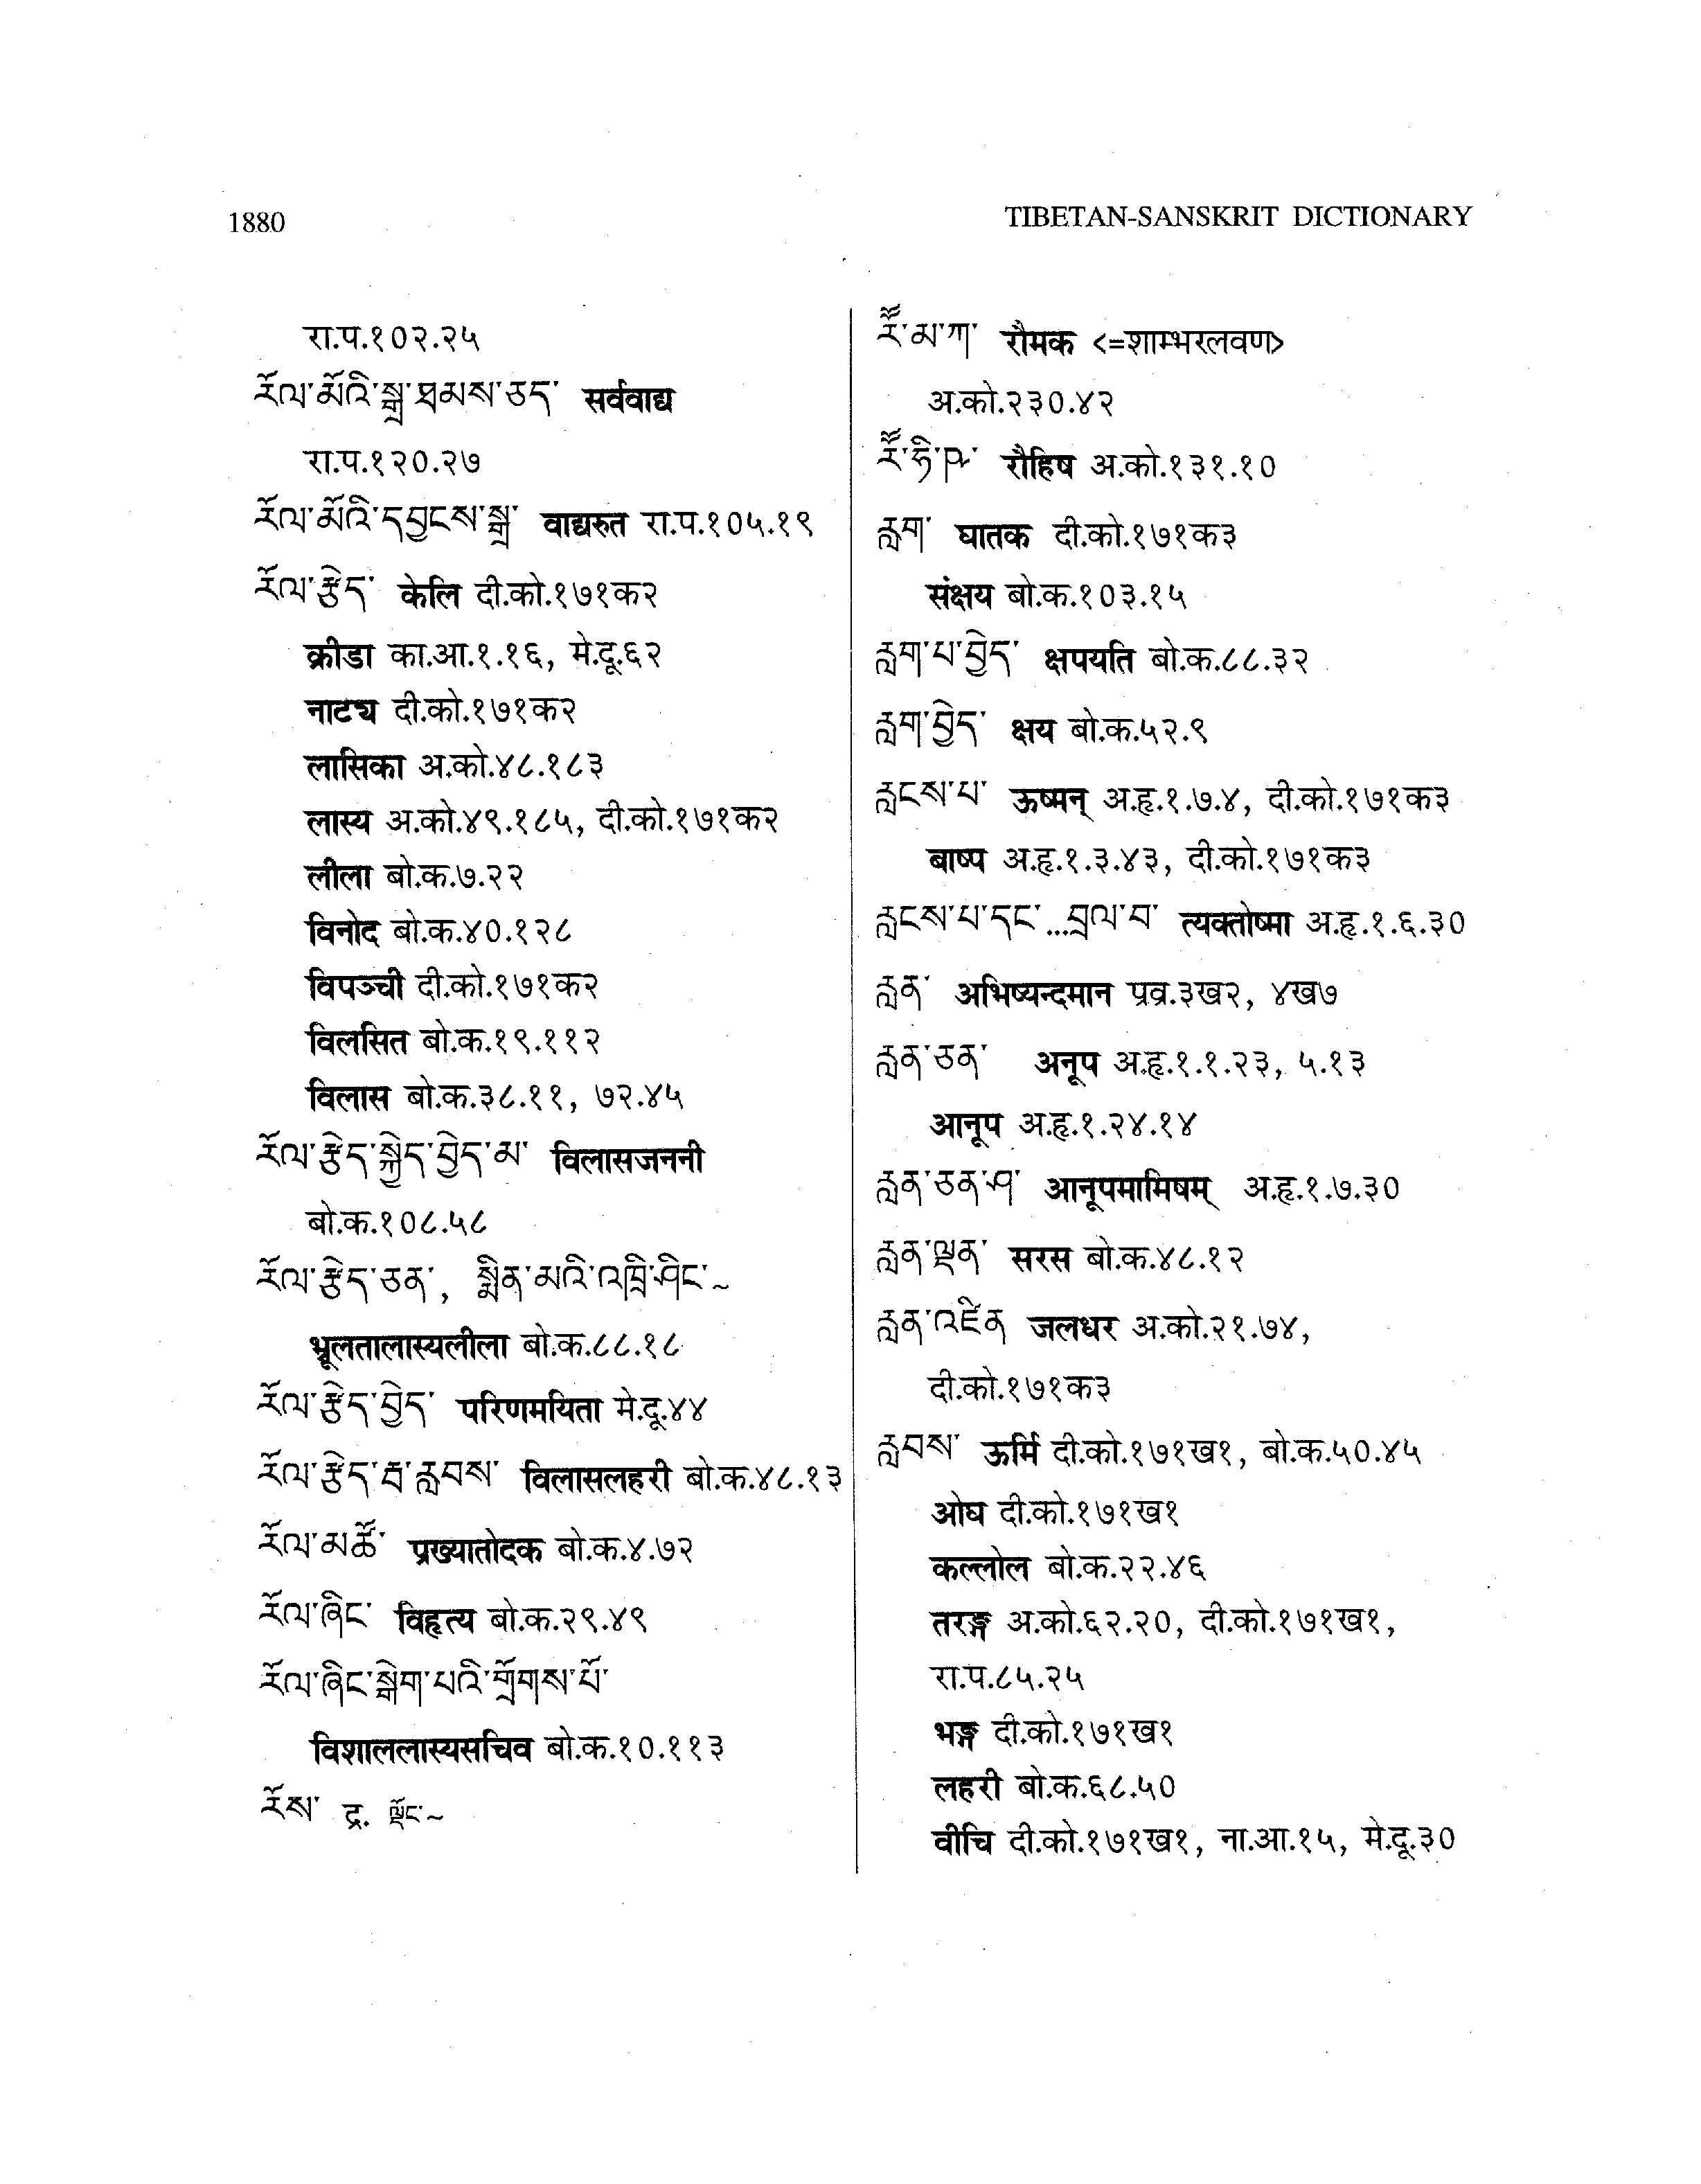 1880
TIBETAN-SANSKRIT DICTIONARY
रा.प.१०२.२५
རོལ་མོའི་སྒྲ་ཐམས་ཅད་ सर्ववाद्य
रा.प.१२०.२७
རོལ་མོའི་དབྱངས་སྒྲ་ वाद्यरुत रा.प.१०५.१९
རོལ་རྩེད་ केलि दी.को.१७१क२
क्रीडा का.आ.१.१६, मे.दू.६२
नाट्य दी.को.१७१क२
लासिका अ.को.४८.१८३
लास्य अ.को.४९.१८५, दी.को.१७१क२
लीला बो.क.७.२२
विनोद बो.क.४०.१२८
विपञ्ची दी.को.१७१क२
विलसित बो.क.१९.११२
विलास बो.क.३८.११, ७२.४५
རོལ་རྩེད་སྐྱེད་བྱེད་མ་ विलासजननी
बो.क.१०८.५८
རོལ་རྩེད་ཅན་, སྨིན་མའི་འཁྲི་ཤིང་~
भ्रूलतालास्यलीला बो.क.८८.१८
རོལ་རྩེད་བྱེད་ परिणमयिता मे.दू.४४
རོལ་རྩེད་བ་རླབས་ विलासलहरी बो.क.४८.१३
རོལ་མཚོ་ प्रख्यातोदक बो.क.४.७२
རོལ་ཞིང་ विहृत्य बो.क.२९.४९
རོལ་ཞིང་སྒེག་པའི་གྲོགས་པོ་
विशाललास्यसचिव बो.क.१०.११३
རོས་ द्र. ལྡོང་~
རཽ་མ་ཀ་ रौमक <=शाम्भरलवण>
अ.को.२३०.४२
རཽ་ཧི་ཥ་ रौहिष अ.को.१३१.१०
རླག་ घातक दी.को.१७१क३
संक्षय बो.क.१०३.१५
རླག་པ་བྱེད་ क्षपयति बो.क.८८.३२
རླག་བྱེད་ क्षय बो.क.५२.९
རླངས་པ་ ऊष्मन् अ.हृ.१.७.४, दी.को.१७१क३
बाष्प अ.हृ.१.३.४३, दी.को.१७१क३
རླངས་པ་དང་...བྲལ་བ་ त्यक्तोष्मा अ.हृ.१.६.३०
རླན་ अभिष्यन्दमान प्रव्र.३ख२, ४ख७
རླན་ཅན་ अनूप अ.हृ.१.१.२३, ५.१३
आनूप अ.हृ.१.२४.१४
རླན་ཅན་ཤ་ आनूपमामिषम् अ.हृ.१.७.३०
རླན་ལྡན་ सरस बो.क.४८.१२
རླན་འཛིན जलधर अ.को.२१.७४,
दी.को.१७१क३
རླབས་ ऊर्मि दी.को.१७१ख१, बो.क.५०.४५
ओघ दी.को.१७१ख१
कल्लोल बो.क.२२.४६
तरङ्ग अ.को.६२.२०, दी.को.१७१ख१,
रा.प.८५.२५
भङ्ग दी.को.१७१ख१
लहरी बो.क.६८.५०
वीचि दी.को.१७१ख१, ना.आ.१५, मे.दू.३०